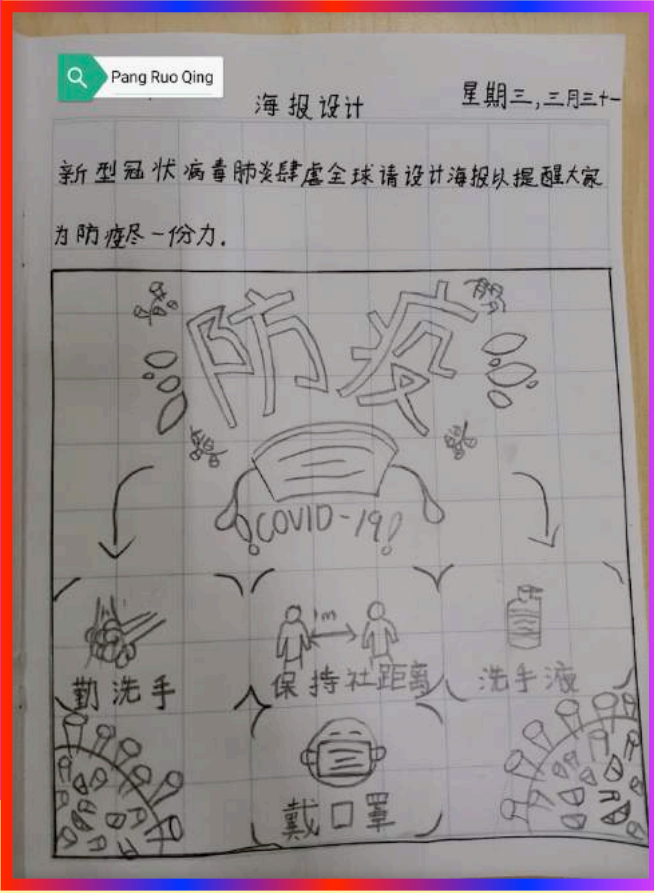 Pang Ruo Qing
海报设计
星期三,三月三十一
新型冠状病毒肺炎肆虐全球请设计海报以提醒大家
为防疫尽一份力.
防疫
COVID-19!
1m
勤洗手
保持社距离
洗手液
戴口罩